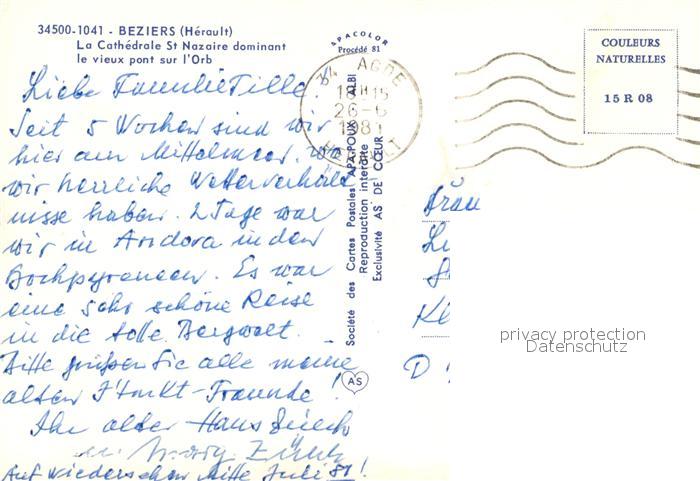 34500-1041 - BEZIERS (Hérault)
La Cathédrale St Nazaire dominant
le vieux pont sur l'Orb
APACOLOR
Procédé 81
34 AGDE
18H15
26-6
1981
HERAULT
COULEURS
NATURELLES
15 R 08
Liebe Familie Tille.
Seit 5 Wochen sind wir
hier am Mittelmeer, wo
wir herrliche Wetterverhält
nisse haben. 2 Tage war
wir in Andora in den
Hochpyreneen. Es war
eine sehr schöne Reise
in die tolle Bergwelt.
Bitte grüßen Sie alle meine
alten Freunde!
Ihr alter Hans
Auf Wiedersehen Mitte Juli 81!
Société des Cartes Postales APA-POUX ALBI
Reproduction interdite
Exclusivité AS DE CŒUR
AS
Frau
D
privacy protection
Datenschutz